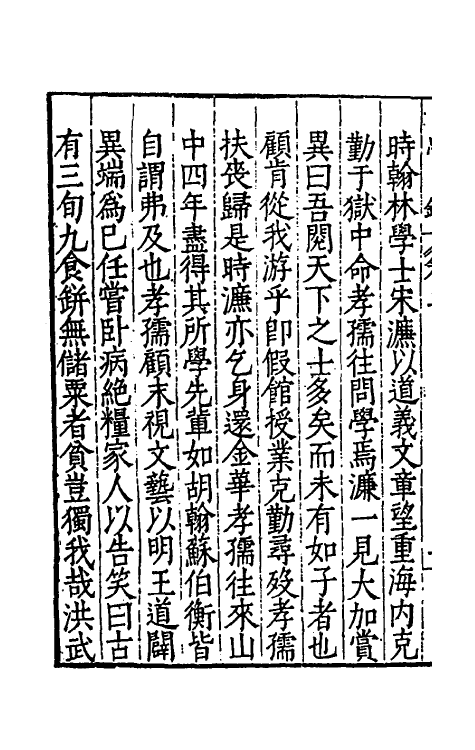 時翰林學士宋濂以道義文章望重海内克
勤于獄中命孝孺往問學焉濂一見大加賞
異曰吾閱天下之士多矣而未有如子者也
顧肯從我游乎卽假館授業克勤尋歿孝孺
扶喪歸是時濂亦乞身還金華孝孺往來山
中四年盡得其所學先軰如胡翰蘇伯衡皆
自謂弗及也孝孺顧末視文藝以明王道闢
異端爲已任嘗卧病絶糧家人以告笑曰古
有三旬九食缾無儲粟者貧豈獨我哉洪武